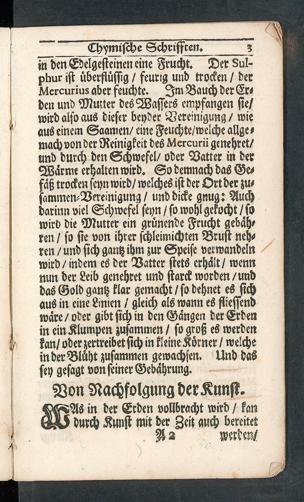 Chymische Schrifften. 3
in den Edelgesteinen eine Frucht. Der Sul-
phur ist überflüssig / feurig und trocken / der
Mercurius aber feuchte. Im Bauch der Er-
den und Mutter des Wassers empfangen sie/
wird also aus dieser beyder Vereinigung / wie
aus einem Saamen/ eine Feuchte/welche allge-
mach von der Reinigkeit des Mercurii genehret/
und durch den Schwefel/ oder Vatter in der
Wärme erhalten wird. So demnach das Ge-
fäß trocken seyn wird/ welches ist der Ort der zu-
sammen-Vereinigung / und dicke gnug: Auch
darinn viel Schwefel seyn / so wohl gekocht / so
wird die Mutter ein grünende Frucht gebäh-
ren / so sie von ihrer schleimichten Brust neh-
ren / und sich gantz ihm zur Speise verwandeln
wird / indem es der Vatter stets erhält / wenn
nun der Leib genehret und starck worden / und
das Gold gantz klar gemacht / so dehnet es sich
aus in eine Linien / gleich als wann es fliessend
wäre / oder gibt sich in den Gängen der Erden
in ein Klumpen zusammen / so groß es werden
kan/ oder zertreibet sich in kleine Körner / welche
in der Blüht zusammen gewachsen. Und das
sey gesagt von seiner Gebährung.
Von Nachfolgung der Kunst.
WAs in der Erden vollbracht wird / kan
durch Kunst mit der Zeit auch bereitet
A 2 werden/